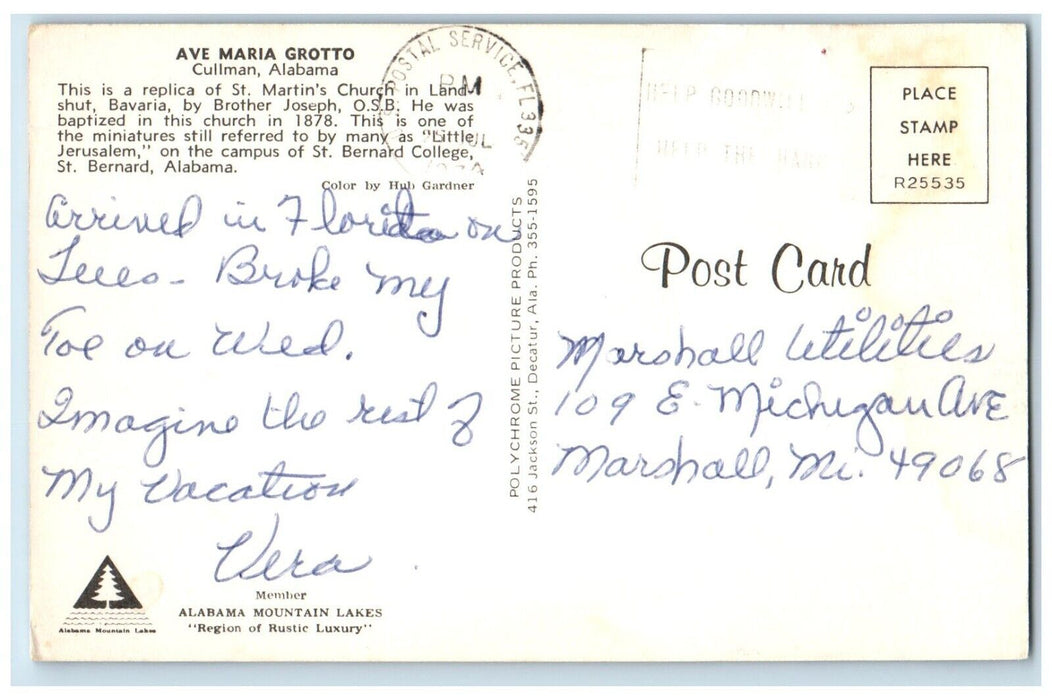 AVE MARIA GROTTO
Cullman, Alabama
This is a replica of St. Martin's Church in Land-
shut, Bavaria, by Brother Joseph, O.S.B. He was
baptized in this church in 1878. This is one of
the miniatures still referred to by many as "Little
Jerusalem," on the campus of St. Bernard College,
St. Bernard, Alabama.
Color by Hub Gardner
POSTAL SERVICE, FL 335
PM
JUL
HELP GOODWILL
HELP THE
PLACE
STAMP
HERE
R25535
Arrived in Florida on
Tues - Broke my
Toe on Wed.
Imagine the rest of
My Vacation
Vera
POLYCHROME PICTURE PRODUCTS
416 Jackson St., Decatur, Ala. Ph. 355-1595
Post Card
Marshall Utilities
109 E. Michigan Ave
Marshall, Mi. 49068
Alabama Mountain Lakes
Member
ALABAMA MOUNTAIN LAKES
"Region of Rustic Luxury"